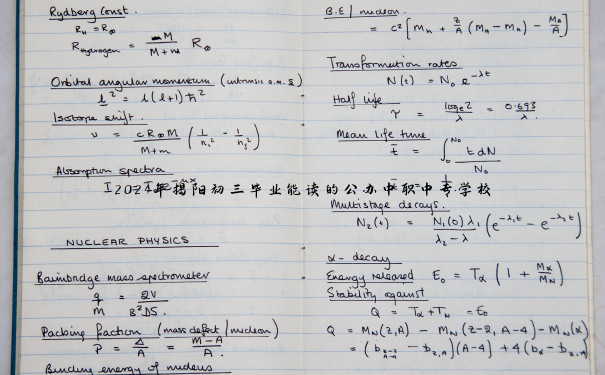 Rydberg Const.
R_H = R_∞
R_Hydrogen = M / (M + m) R_∞
Orbital angular momentum (intrinsic a.m. s)
l² = l(l+1) ħ²
Isotope shift.
ν = (c R_∞ M / (M+m)) (1/n_i² - 1/n_j²)
Absorption spectra
2024年揭阳初三毕业能读的公办中职中专学校
NUCLEAR PHYSICS
Bainbridge mass spectrometer
q/m = 2V / B²DS.
Packing fraction (mass defect / nucleon)
P = Δ/A = (M-A)/A.
Binding energy of nucleus
B.E / nucleon.
= c² [M_n + Z/A (M_H - M_n) - M_A/A]
Transformation rates
N(t) = N₀ e^{-λt}
Half life
τ = log_e 2 / λ = 0.693 / λ.
Mean life time
t̄ = ∫₀^{N₀} t dN / N₀
Multistage decays.
N₂(t) = N₁(0) λ₁ / (λ₂ - λ) (e^{-λ₁t} - e^{-λ₂t})
α - decay
Energy released E₀ = T_α (1 + M_α/M_N)
Stability against
Q = T_α + T_N = E₀
Q = M_N(Z,A) - M_N(Z-2, A-4) - M_N(α)
= (b_{Z-2,A-4} - b_{Z,A})(A-4) + 4(b_α - b_{Z,A})